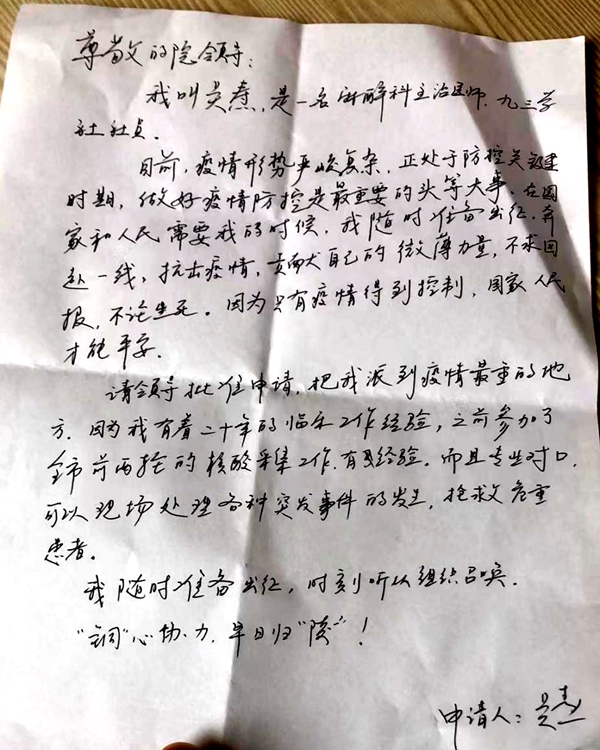 尊敬的院领导：
我叫吴焘，是一名麻醉科主治医师，九三学
社社员。
目前，疫情形势严峻复杂，正处于防控关键
时期，做好疫情防控是最重要的头等大事。在国
家和人民需要我的时候，我随时准备出征，奔
赴一线，抗击疫情，贡献自己的微薄力量，不求回
报，不论生死。因为只有疫情得到控制，国家人民
才能平安。
请领导批准申请，把我派到疫情最重的地
方。因为我有着二十年的临床工作经验，之前参加了
全市前两轮的核酸采集工作，有经验。而且专业对口，
可以现场处理各种突发事件的发生，抢救危重
患者。
我随时准备出征，时刻听从组织召唤。
“铜”心协力，早日归“陵”！
申请人：吴